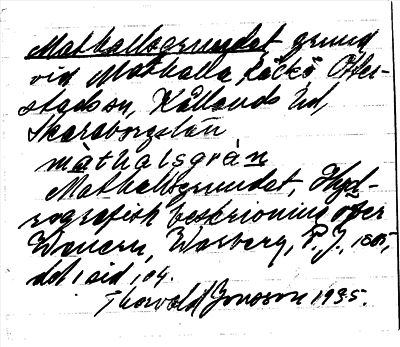 Mathallsgrundet grund
vid Mathalla Läckö Otter-
stadsn, Kållands hd,
Skaraborgslän
màthalsgràn
Mathallsgrundet, Hyd-
rografisk beskrivning öfver
Wenern, Warberg, P. J., 1885,
del 1 sid 104.
Thorvald Jonsson 1935.